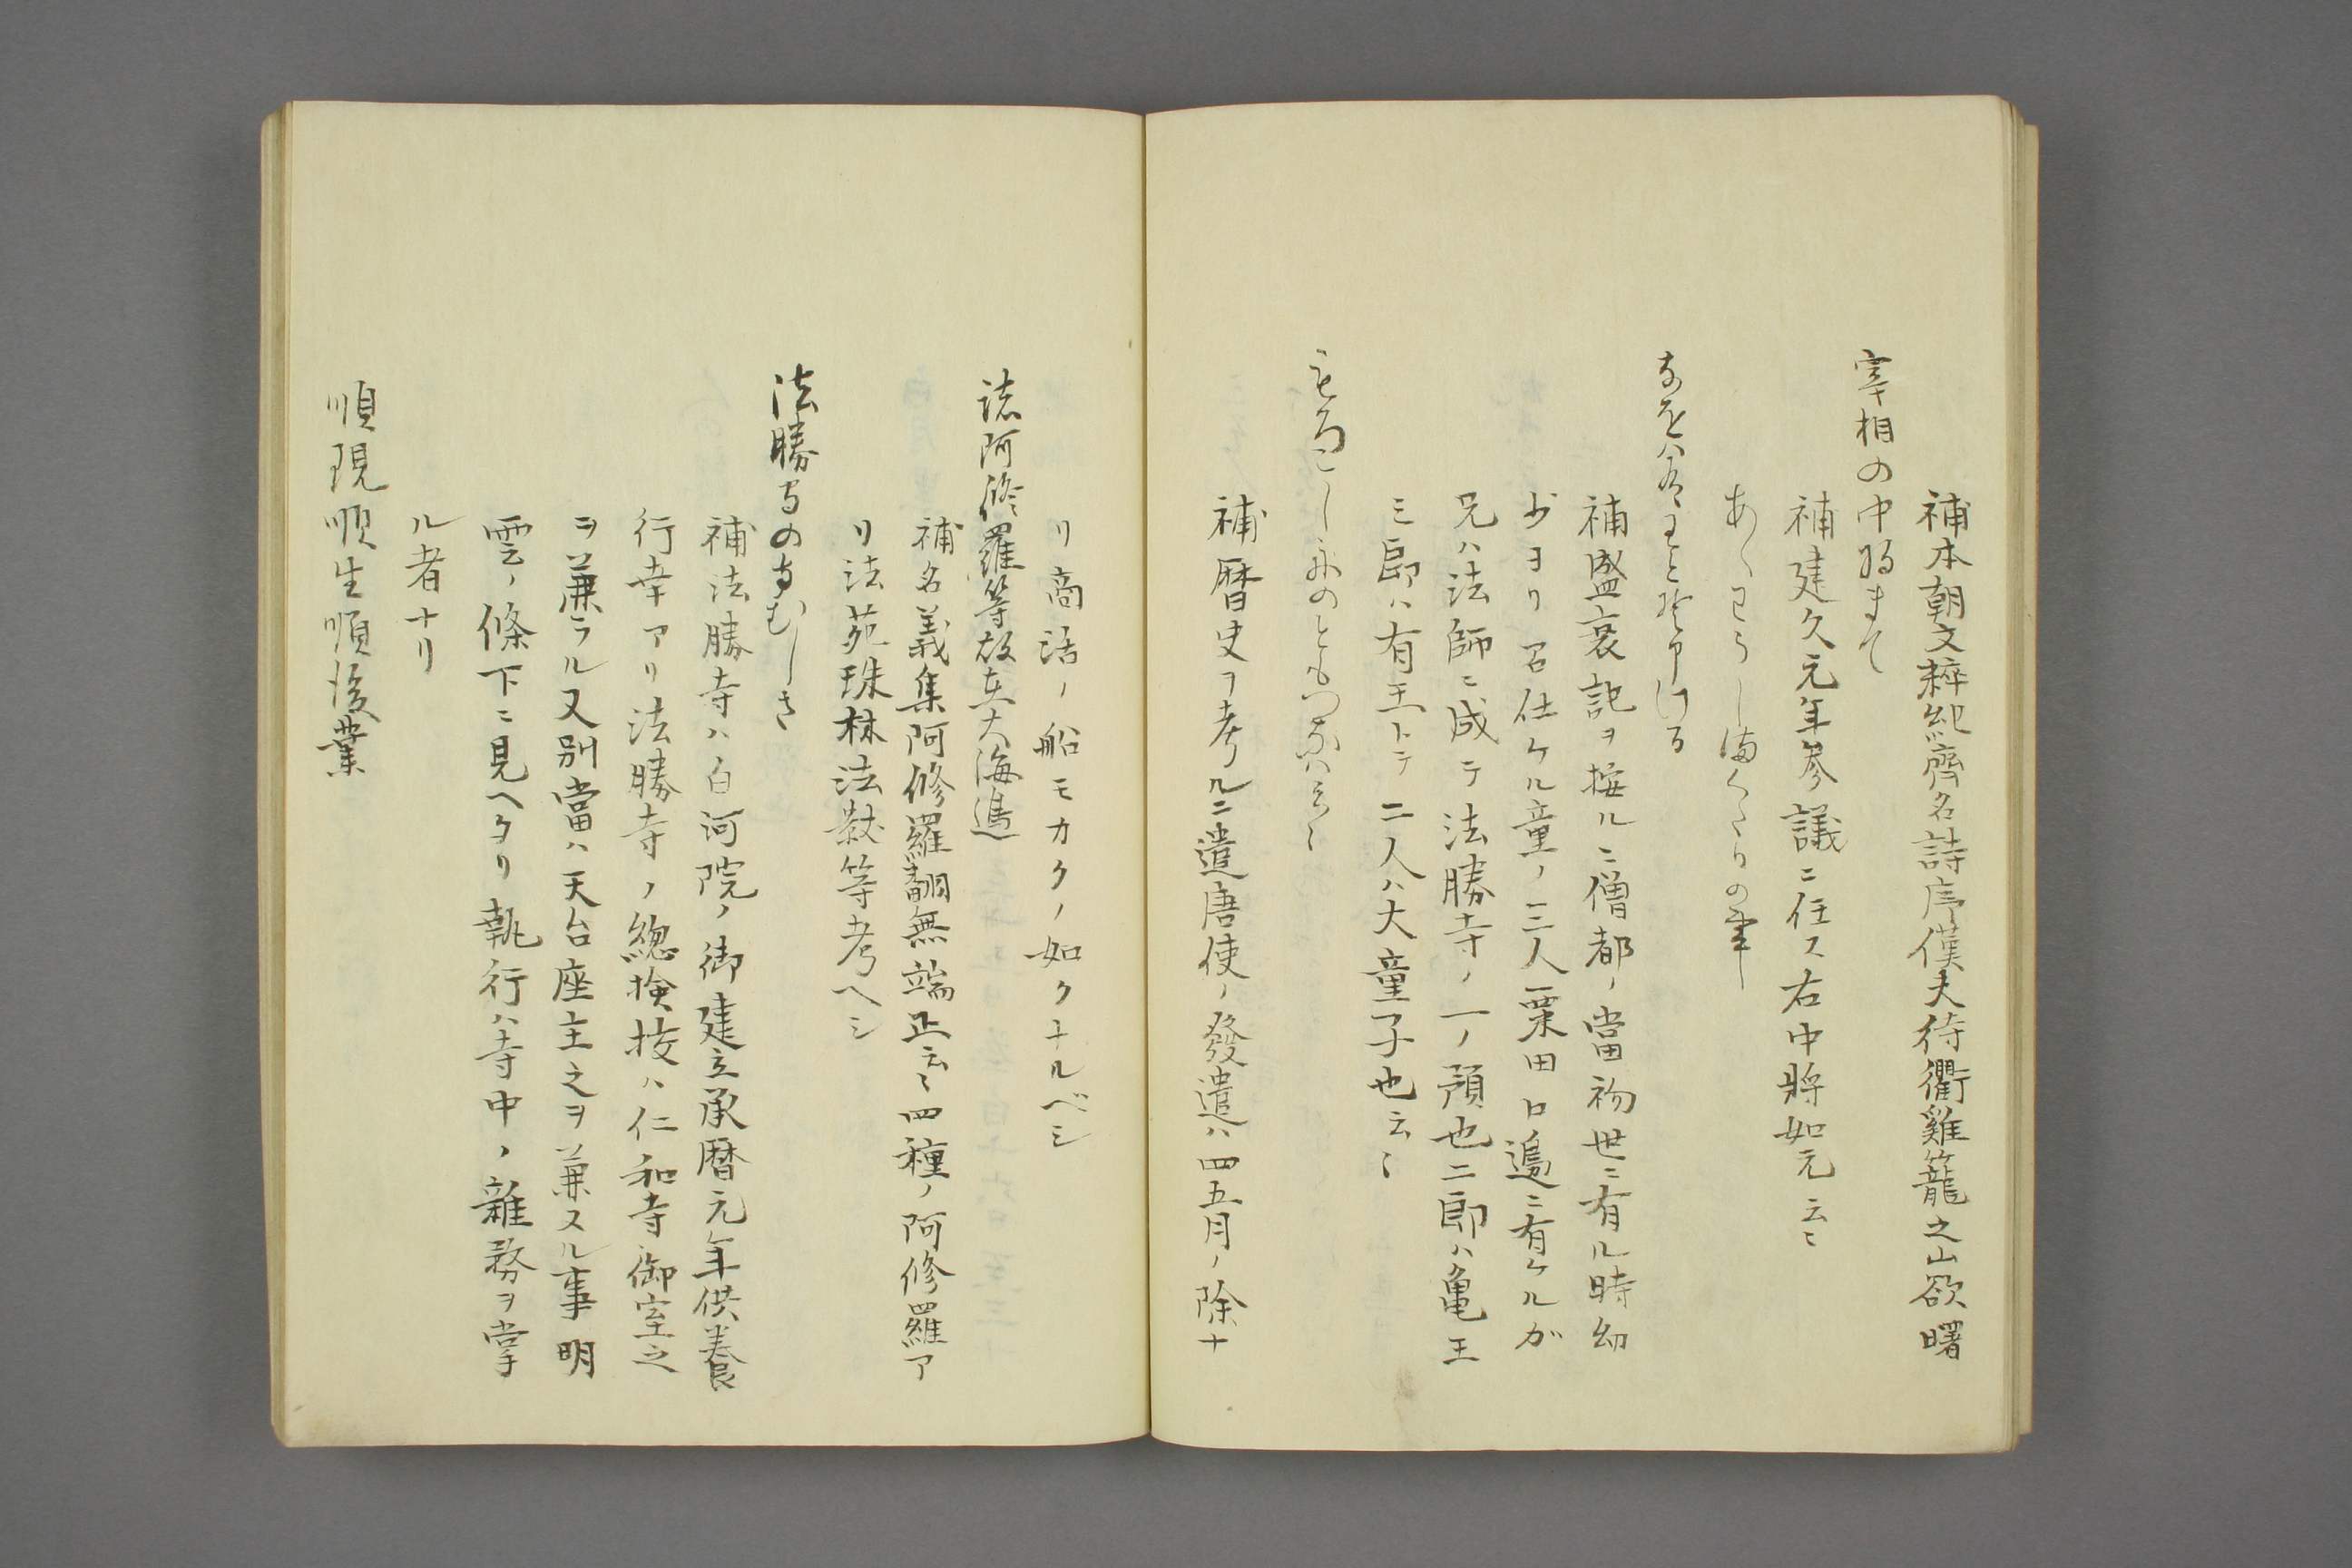 補本朝文粹紀齊名詩序僕夫待衢雞籠之山欲曙
宰相の中将まて
補建久元年参議ニ任ス右中將如元云〻
あ
なをは有王とそ申ける
補盛衰記ヲ按ルニ僧都ノ當初世ニ有ル時幼
少ヨリ召仕ケル童ノ三人粟田口邉ニ有ケルガ
兄ハ法師ニ成テ法勝寺ノ一ノ預也二郎ハ亀王
三郎ハ有王トテ二人ハ大童子也云〻
もろこし舩のともつなは云〻
補暦史ヲ考ルニ遣唐使ノ發遣ハ四五月ノ除ナ
リ商話ノ船モカクノ如クナルベシ
諸阿修羅等故在大海邉
補名義集阿修羅翻無端正云〻四種ノ阿修羅ア
リ法苑珠林法数等考ヘシ
法勝寺の寺むしき
補法勝寺ハ白河院ノ御建立承暦元年供養
行幸アリ法勝寺ノ總検挍ハ仁和寺御室之
ヲ兼ラル又別當ハ天台座主之ヲ兼スル事明
雲ノ條下ニ見ヘタリ執行ハ寺中ノ雜務ヲ掌
ル者ナリ
順現順生順後業